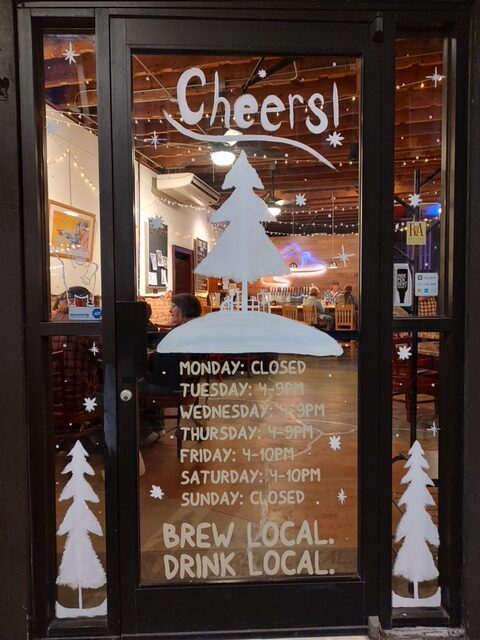 Cheers!
MONDAY: CLOSED
TUESDAY: 4-9PM
WEDNESDAY: 4-9PM
THURSDAY: 4-9PM
FRIDAY: 4-10PM
SATURDAY: 4-10PM
SUNDAY: CLOSED
BREW LOCAL.
DRINK LOCAL.